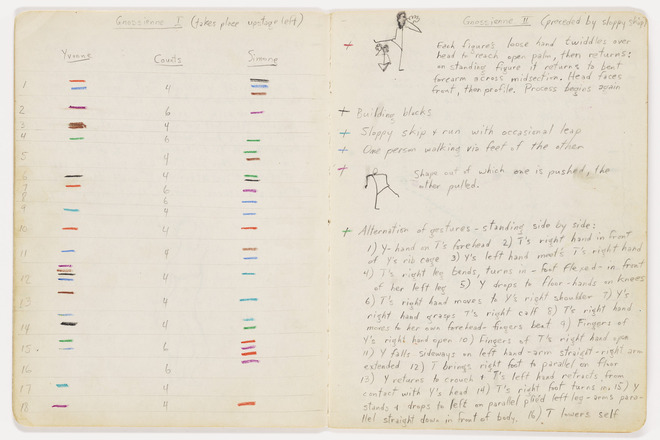 Gnossienne I (takes place upstage left)
Yvonne Counts Simone
1 4
2 6
3 4
4 6
5 4
6 4
7 6
8 6
9 4
10 4
11 4
12 4
13 4
14 4
15 6
16 6
17 4
18 4
Gnossienne II (preceded by sloppy skip)
+ Each figures loose hand twiddles over
head to reach open palm, then returns:
on standing figure it returns to beat
forearm across midsection. Head faces
front, then profile. Process begins again
+ Building blocks
+ Sloppy skip & run with occasional leap
+ One person walking via feet of the other
+ Shape out of which one is pushed, the
other pulled.
+ Alternation of gestures - standing side by side:
1) Y- hand on T's forehead 2) T's right hand in front
of Y's rib cage 3) Y's left hand meets T's right hand
4) T's right leg bends, turns in - foot flexed - in front
of her left leg 5) Y drops to floor - hands on knees
6) T's right hand moves to Y's right shoulder 7) Y's
right hand grasps T's right calf 8) T's right hand
moves to her own forehead - fingers beat 9) Fingers of
Y's right hand open 10) Fingers of T's right hand open
11) Y falls sideways on left hand - arm straight - right arm
extended 12) T brings right foot to parallel on floor
13) Y returns to crouch + T's left hand retracts from
contact with Y's head 14) T's right foot turns in 15) Y
stands + drops to left on parallel plié left leg - arms para-
llel straight down in front of body. 16) T lowers self